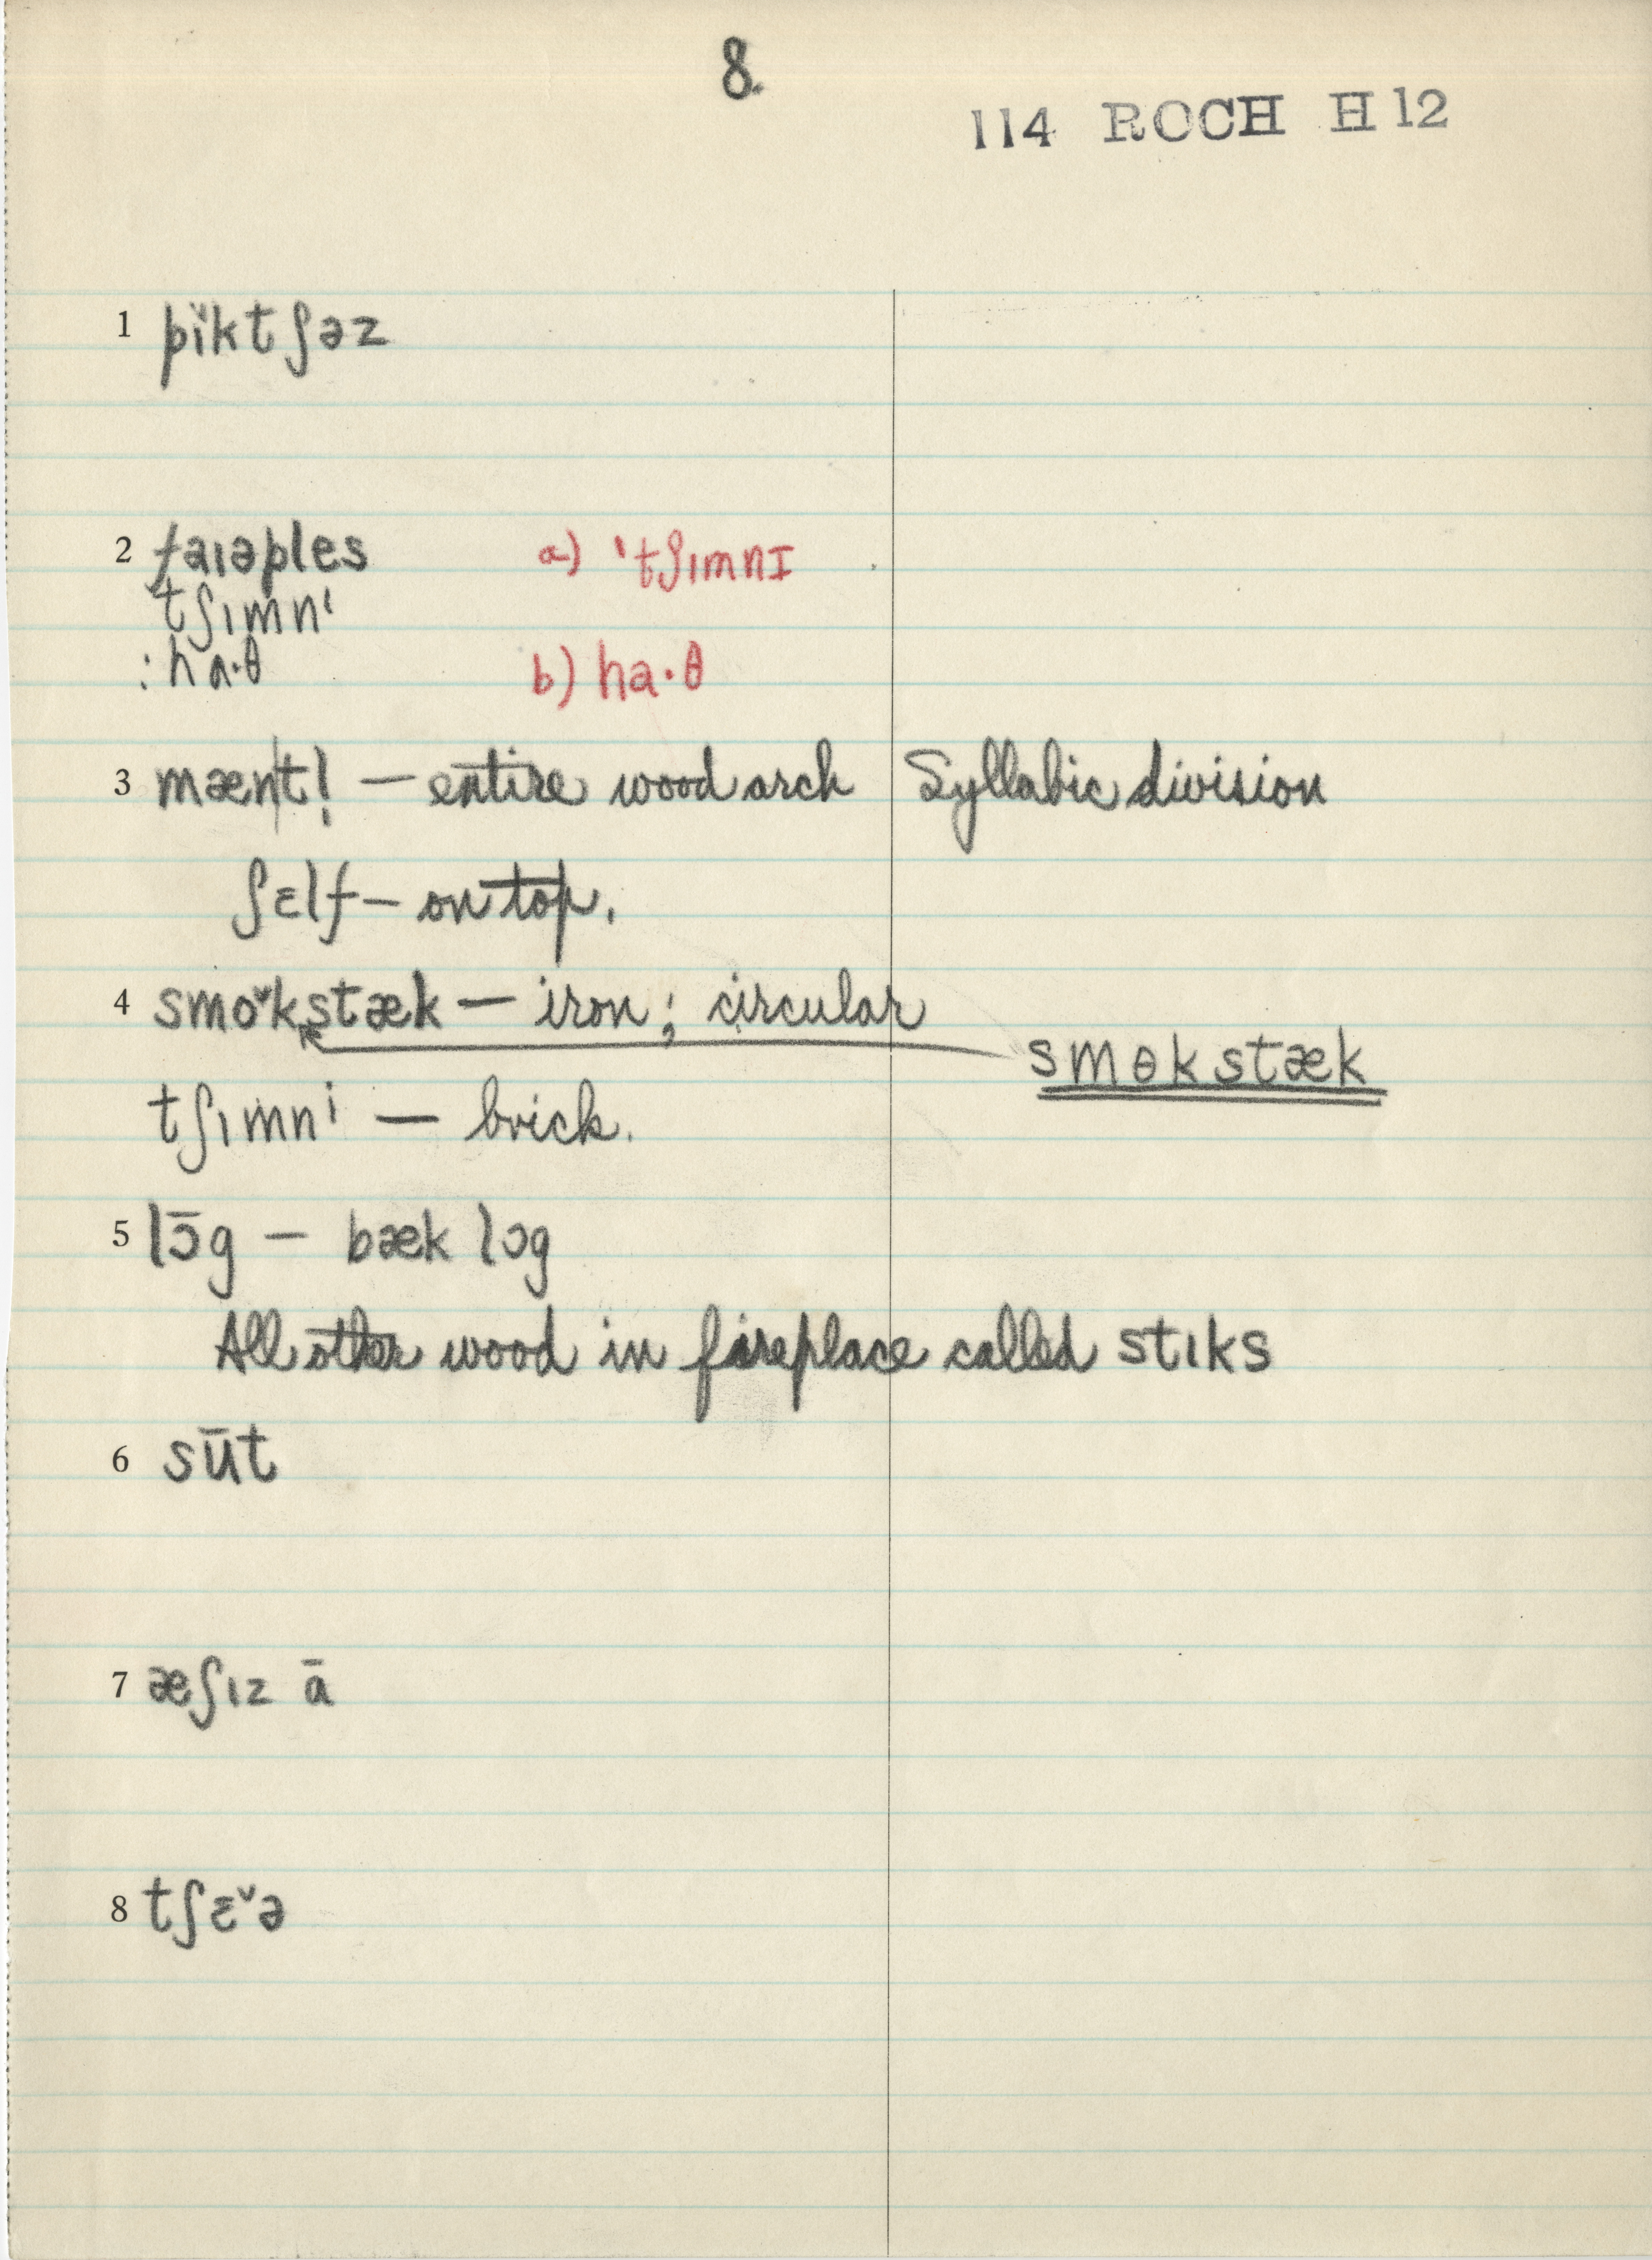 8.
114 ROCH H12
1 pïktʃəz
2 faɪəples a) 'tʃɪmnɪ
tʃɪmnⁱ
: ha·θ b) ha·θ
3 mæn|tl̩ — entire wood arch Syllabic division
ʃɛlf — on top.
4 smoˇkstæk — iron; circular
smɵkstæk
tʃɪmnⁱ — brick.
5 lɔ̄g — bæk lɔg
All other wood in fireplace called stɪks
6 sūt
7 æʃɪz ā
8 tʃɛ̄ˇə